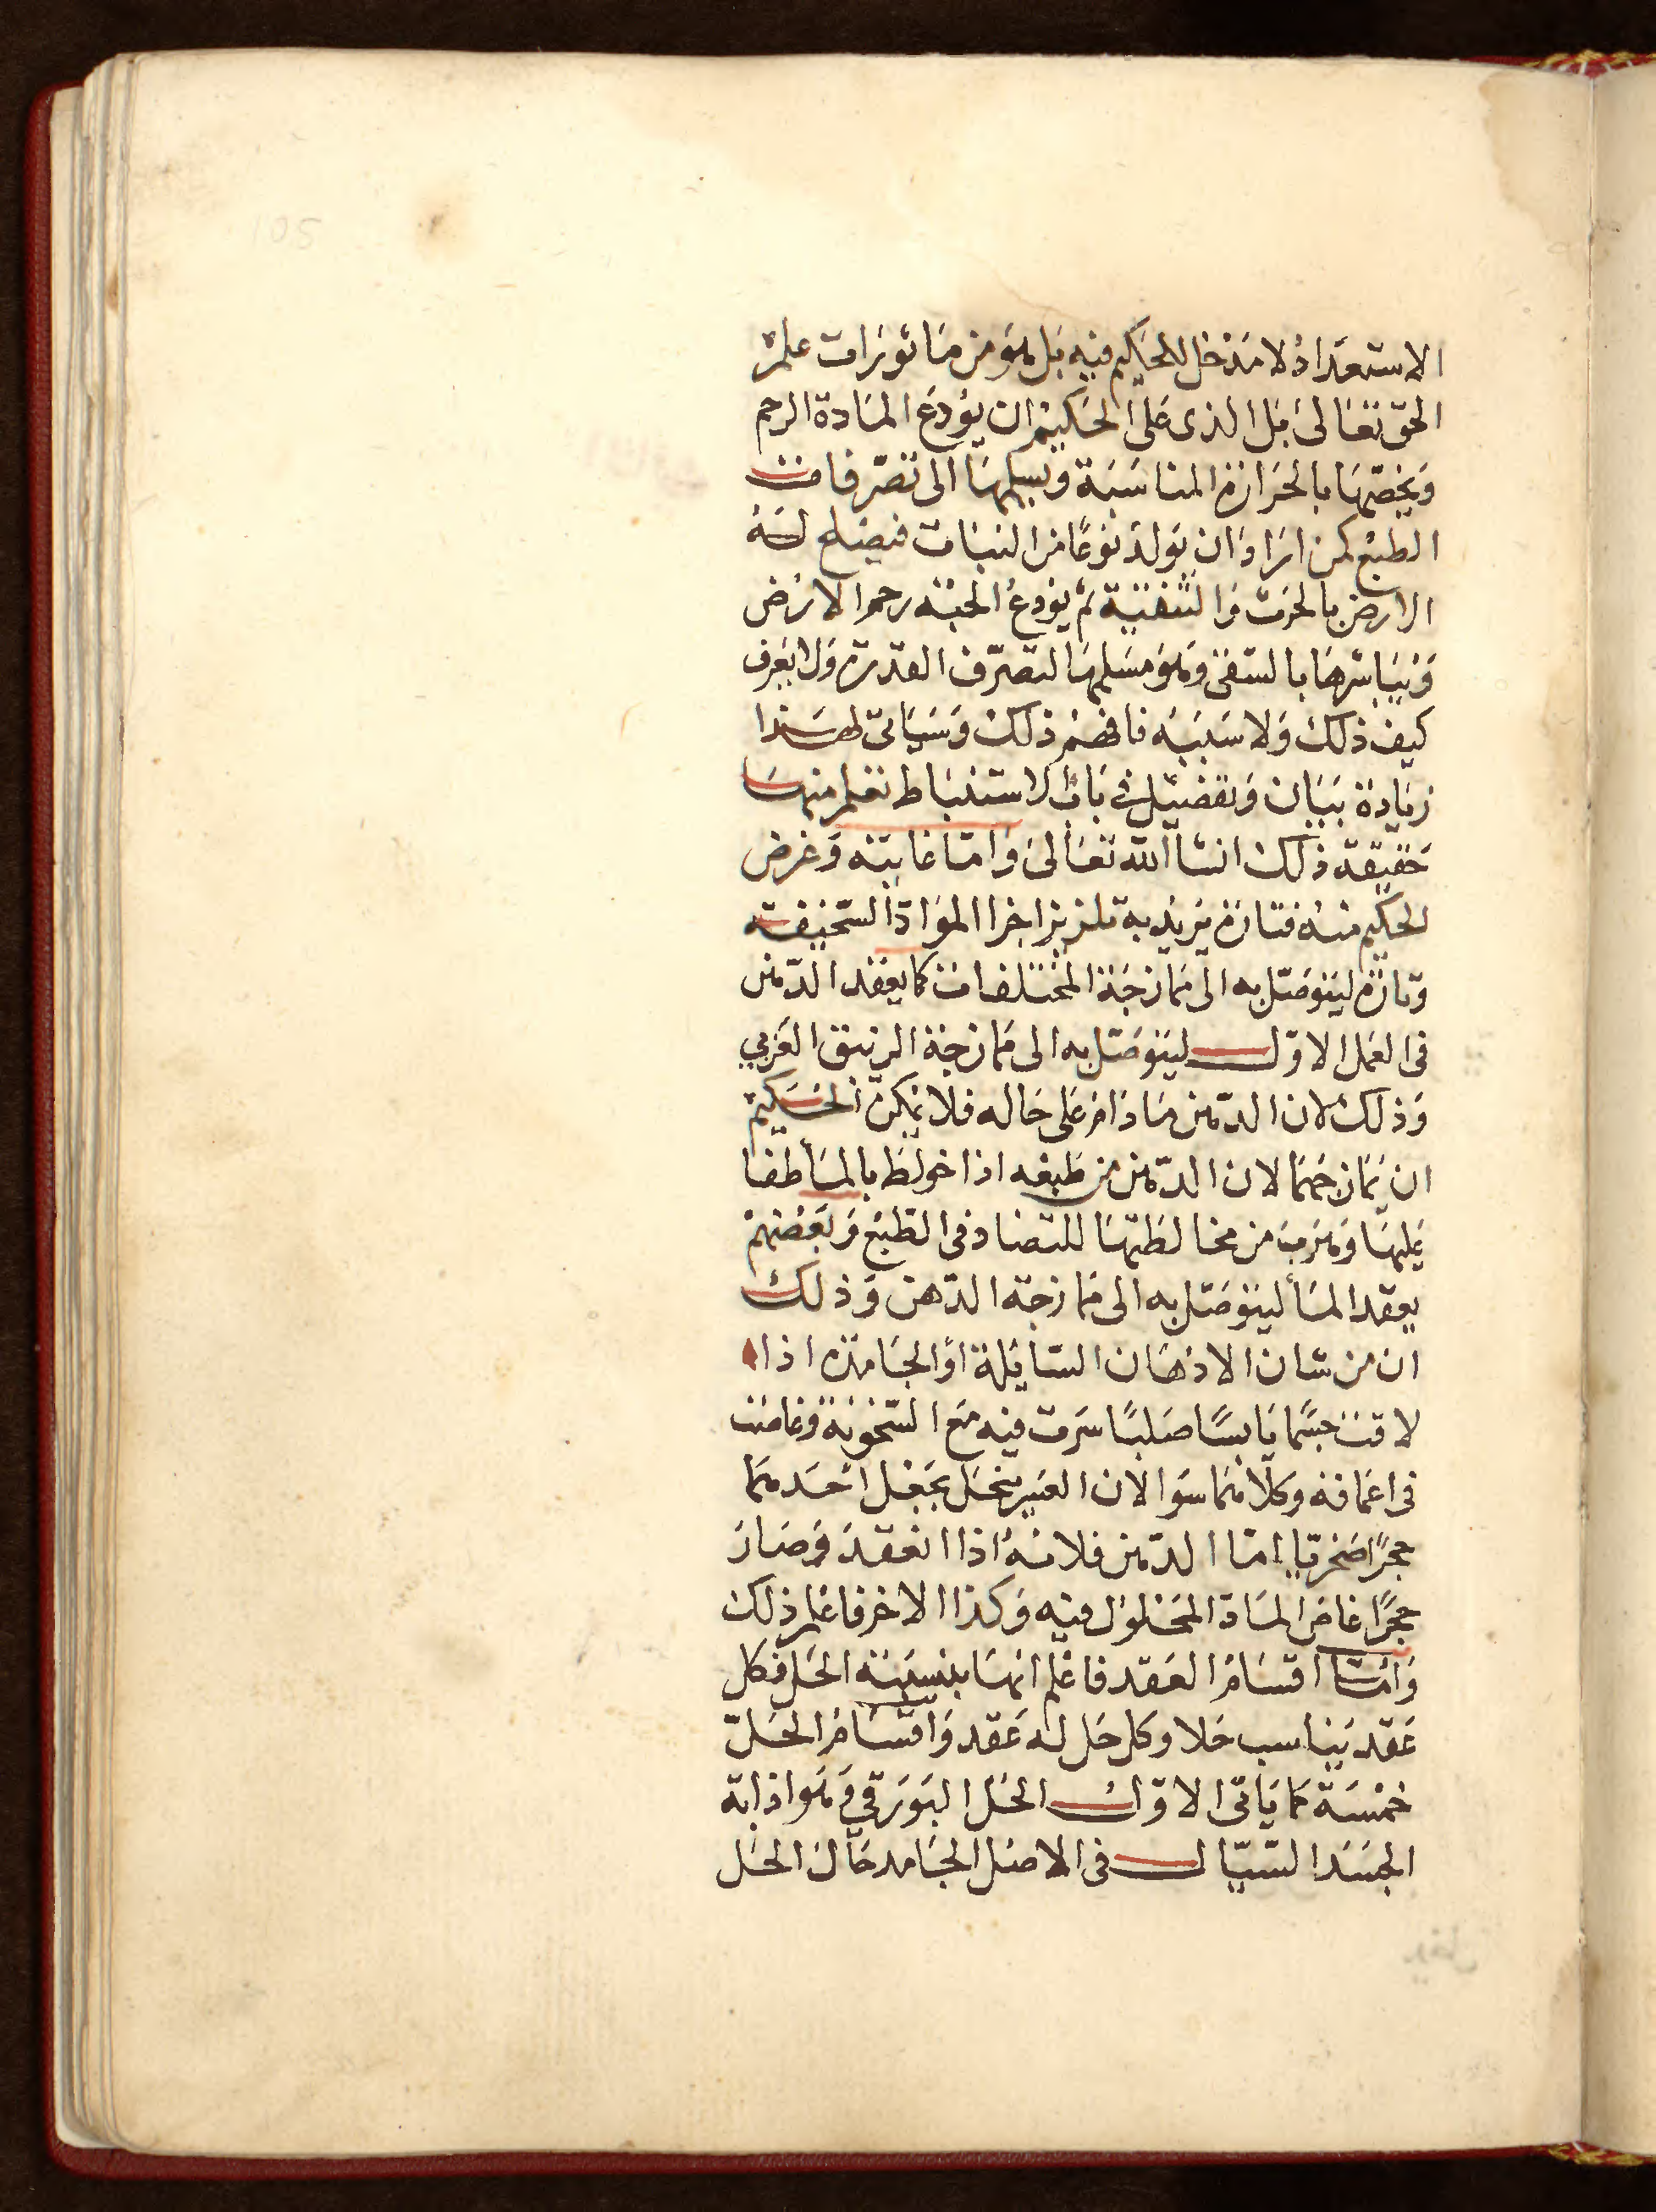 الاستعداد لا مدخل للحكيم فيه بل هو من مأثورات علم
الحق تعالى بل الذى على الحكيم ان يودع المادة الرحم
ويخصّها بالحرارة المناسبة ويسلمها الى تصرّفات
الطبع كمن اراد ان يولد نوعًا من النبات فيصلح له
الارض بالحرث والتنقية ثم يودع الحبّه رحم الارض
ويباشرها بالسقى وهو مسلمها لتصرّف القدرة ولا يعرف
كيف ذلك ولا سببه فافهم ذلك وسيأتى لهذا
زيادة بيان وتفضيل فى باب الاستنباط تعلم منها
حقيقة ذلك انشا الله تعالى واما غايته وغرض
الحكيم منه فتارة يريد به تلزيز اجزا المواد السخيفه
وتارة ليتوصّل به الى ممازجة المختلفات كما يعقد الدّهن
فى العمل الاوّل ليتوصّل به الى ممازجة الزيبق الغربي
وذلك لان الدّهن مادام على حاله فلا يمكن الحكيم
ان يمازجهما لان الدّهن من طبعه اذا خولط بالمأ طفا
عليها وهرب من مخالطتها للتضاد فى الطبع وبعضهم
يعقد المأ ليتوصّل به الى ممازجة الدّهن وذلك
ان من شان الادهان السّايلة او الجامدة اذا
لاقت جسمًا يابسًا صلبًا سرت فيه مع السّخونة وغاصت
فى اعماقه وكلاهما سوا لان الغير منحل يجعل احدهما
حجرًا صخريا امّا الدّهن فلانه اذا انعقد وصار
حجرًا غاص المادة المحلول فيه وكذا الاخر فاعلم ذلك
وامّا اقسام العقد فاعلم انها بنسبة الحل فكل
عقد يناسب حلا وكل حل له عقد واقسام الحلّ
خمسة كما ياتى الاوّل الحل البورقي وهو اذابة
الجسد السّيّال فى الاصل الجامد حال الحل